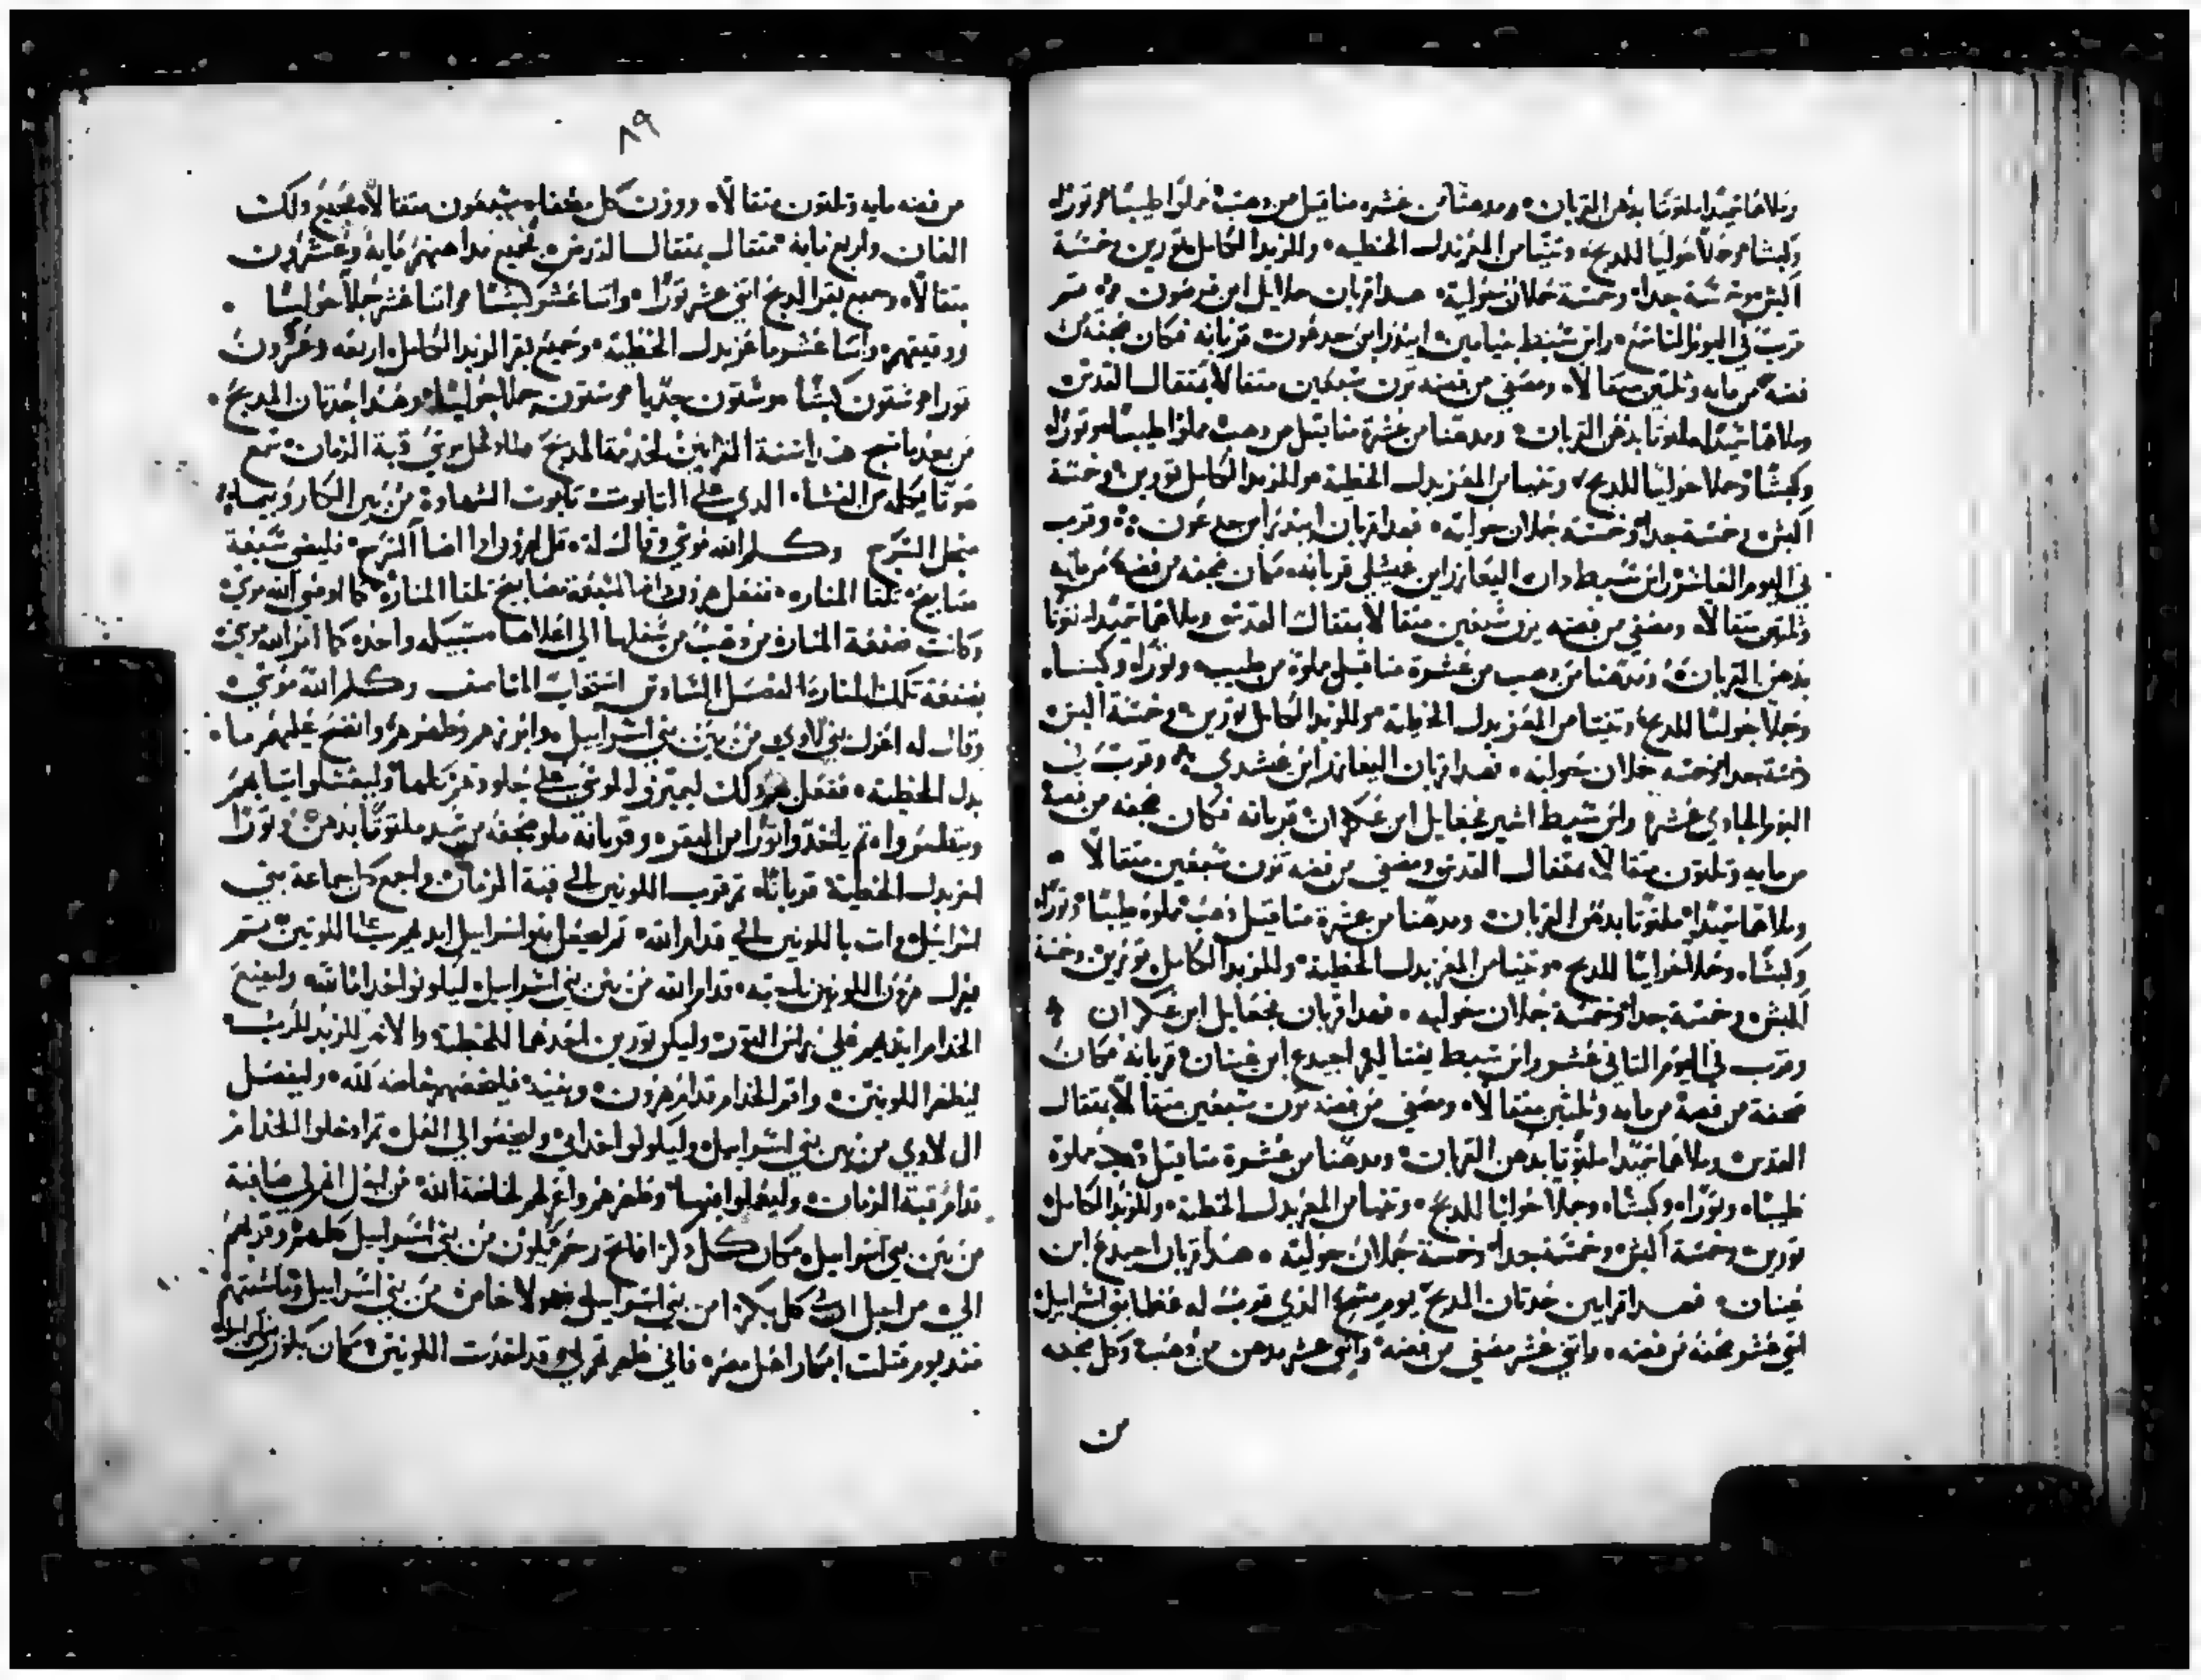 وملاها سميدا ملتوتا بدهن القربان ومدهنا من عشره مثاقيل من دهب مملوا طيبا وثورا
وكبشا وحملا حوليا للدبح وتيسا من المعز بدل الخطيه وللوبد الكامل ثورين وخمسة
اكبش وخمسة جدا وخمسة حملان حولية هدا قربان جملايل ابن فدهصون ثم
قرب في اليوم التاسع راس سبط بنيامين ابيدن ابن جدعون قربانه فكان صحفة
فضة من مايه وثلثين مثقالا ومضفي من فضه تزن سبعين مثقالا بمثقال القدس
وملاها سميدا ملتوتا بدهن القربان ومدهنا من عشرة مثاقيل من دهب مملوا طيبا وثورا
وكبشا وحملا حوليا للدبح وتيسا من المعز بدل الخطية وللوبد الكامل ثورين وخمسة
اكبش وخمسة جدا وخمسة حملان حولية فهدا قربان ابيدن ابن جدعون وقرب
في اليوم العاشر راس سبط دان اليعازر ابن عيشلي قربانه فكان صحفه من فضة من مايه
وثلثين مثقالا ومضفي من فضه يزن سبعين مثقالا بمثقال القدس وملاها سميدا ملتوتا
بدهن القربان ومدهنا من دهب من عشرة مثاقيل مملوة من طيب وثورا وكبشا
وحملا حوليا للدبح وتيسا من المعز بدل الخطية وللوبد الكامل ثورين وخمسة اكبش
وخمسة جدا وخمسه حملان حوليه فهدا قربان اليعازر ابن عيشدي وقرب في
اليوم الحادي عشر راس سبط اشير فجعايل ابن عكران قربانه فكان صحفه من فضة
من مايه وثلثون مثقالا بمثقال القدس ومضفي من فضه تزن سبعين مثقالا
وملاها سميدا ملتوتا بدهن القربان ومدهنا من عشرة مثاقيل دهب مملوة طيبا وثورا
وكبشا وحملا حوليا للدبح وتيسا من المعز بدل الخطية وللوبد الكامل ثورين وخمسة
اكبش وخمسة جدا وخمسة حملان حوليه فهدا قربان فجعايل ابن عكران
وقرب في اليوم الثاني عشر راس سبط نفتاليم احيدع ابن عينان قربانه فكان
صحفة من فضة من مايه وثلثين مثقالا ومضفي من فضه تزن سبعين مثقالا بمثقال
القدس وملاها سميدا ملتوتا بدهن القربان ومدهنا من عشرة مثاقيل دهب مملوة
طيبا وثورا وكبشا وحملا حوليا للدبح وتيسا من المعز بدل الخطية وللوبد الكامل
ثورين وخمسة اكبش وخمسة جدا وخمسة حملان حولية هدا قربان احيدع ابن
عينان فهدا قرابين حدثان المدبح يوم مسح الذي قربت له عظما بني اسراييل
اثني عشر صحفة من فضه واثني عشر مضفي من فضه واثني عشر مدهن من دهب وكل صحفه
من
٨٩
من فضه مايه وثلثون مثقالا ووزن كل مضفا سبعون مثقالا فجميع ذلك
الفان واربع ماية مثقال بمثقال القدس فجميع مداهنهم ماية وعشرون
مثقالا وجميع بقر الدبح اثني عشر ثورا واثنا عشر كبشا واثنا عشر حملا حوليا
ودقيقهم واثنا عشر ماعز بدل الخطية وجميع بقر الوبد الكامل اربعه وعشرون
ثورا وستون كبشا وستون جديا وستون حملا حوليا وهدا حدثان المدبح
من بعد ما مسح هده سنة القرابين لخدمة المدبح فلما دخل موسى قبة الزمان سمع
صوتا يكلمه من الغشا الدي على التابوت تابوت الشهادة من بين الكاروبيم
منجل السرج وكلم الله موسى وقال له قل لهرون ادا اضا السرج فليضي سبعة
مصابيح تلقا المناره ففعل هرون اضا السبعة مصابيح تلقا المنارة كما اوصى الله موسى
وكانت صنعة المنارة من دهب من سفلها الى اعلاها سبيكه واحده كما امر الله موسى
بصنعة تلك المنارة الفصل السادس اصحاح الثامن وكلم الله موسى
وقال له اعزل بني لاوي من بين بني اسراييل وابرزهم وطهرهم وانضح عليهم ما
بدل الخطية ففعل هدلك ليمرق الموسى على جلودهم كلها وليغسلوا ثيابهم
ويتطهروا ثم ياخدوا ثورا من البقر وقربانه ملو صحفه من سميد ملتوتا بدهن وثورا
اخر بدل الخطية قربانا ثم قرب اللونين الى قبة الزمان واجمع كل جماعة بني
اسراييل وات باللونين الى قدام الله ثم ليضع بنو اسراييل ايديهم على اللونين ثم
هرون اللونين ناحيه قدام الله من بين بني اسراييل ليكونوا خداما لله وليضع
الخدام ايديهم على راس الثور وليكن ثورين احدهما للخطية والاخر للوبد للرب
ليطهر اللونين واقم الخدام قدام هرون وبنيه فليخصهم خاصه لله وليفصل
ال لاوي من بين بني اسراييل وليكونوا خدامي وليجمعوا الى العمل ثم ادخلوا الخدام
قدام قبة الزمان وليعملوا وطهرهم واعزلهم لخاصة الله من اجل انهم لي صافية
من بين بني اسراييل مكان كل دكر فاتح رحم يكون من بني اسراييل كلهم وقربهم
الي من اجل ان كل بكر من بني اسراييل فهو لي خاص من بني اسراييل وماشيتهم
عند يوم قتلت ابكار اهل مصر فاني طهرتهم لي وقد اخدت اللونين مكان